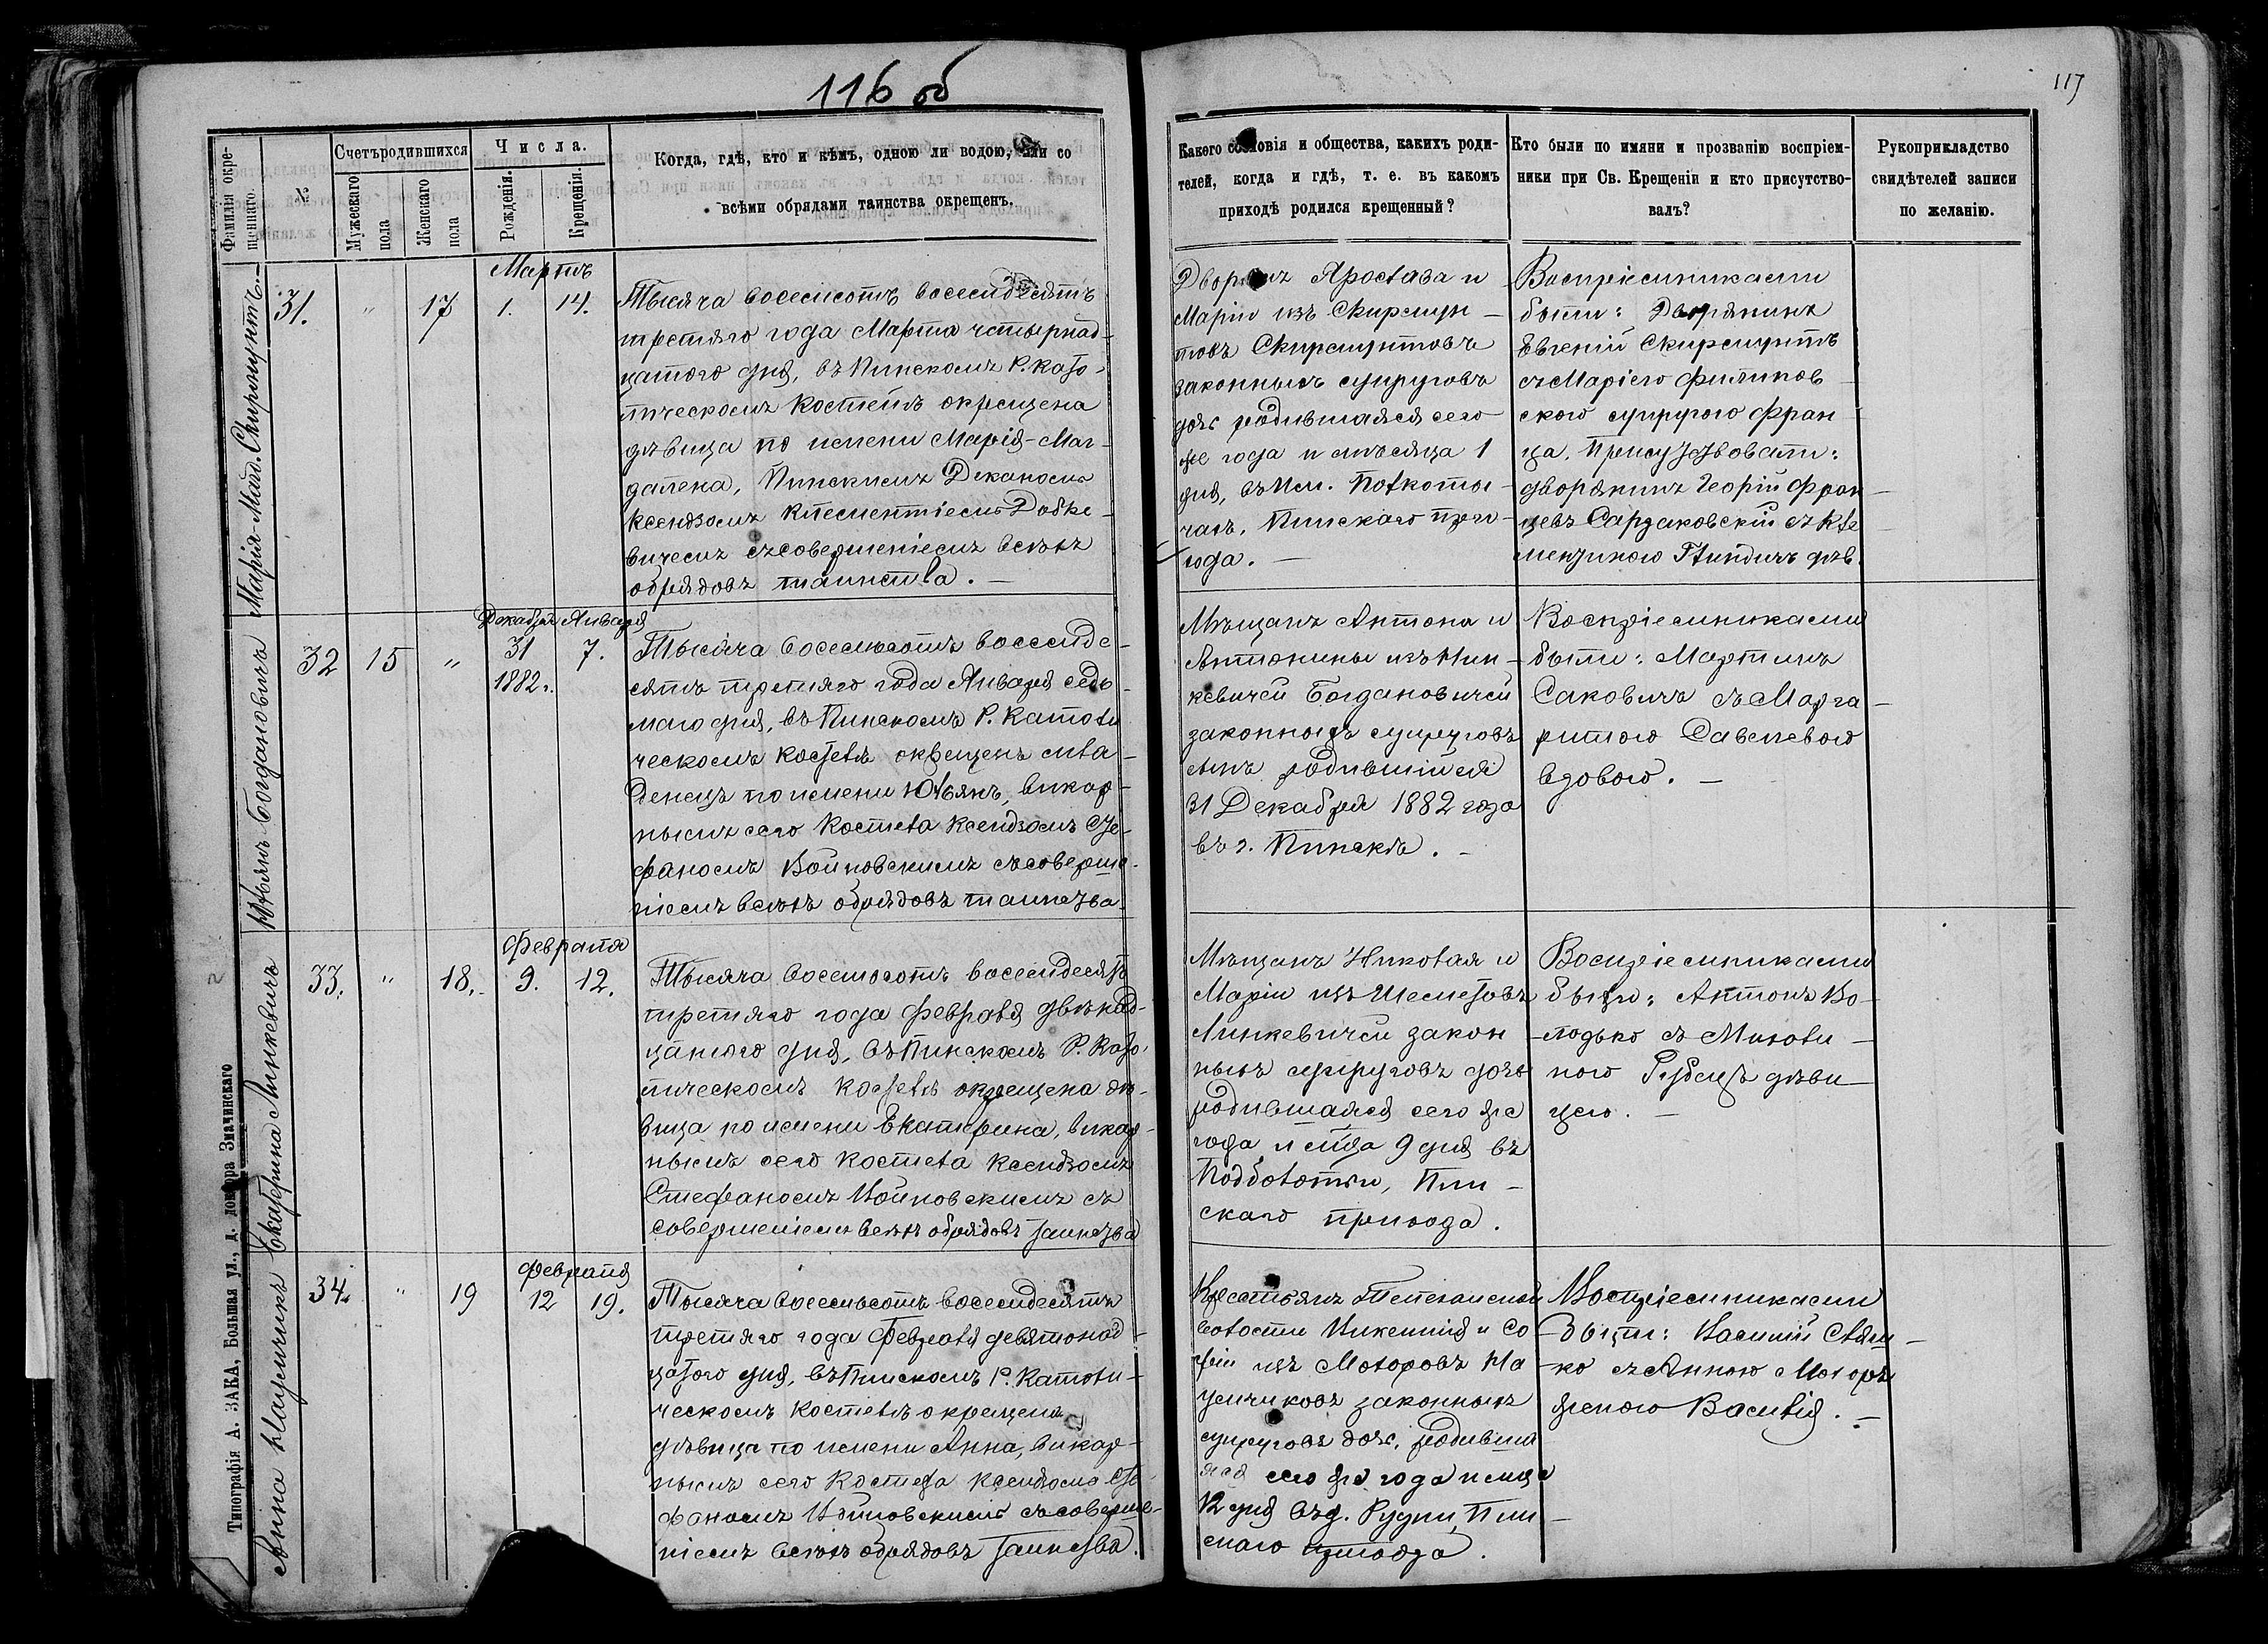 116 об
117
Фамилія окре-
щеннаго.
№
Счетъ родившихся
Мужескаго
пола
Женскаго
пола
Числа.
Рожденія.
Крещенія.
Когда, гдѣ, кто и кѣмъ, одною ли водою, или со
всѣми обрядами таинства окрещенъ.
Какого сословія и общества, какихъ роди-
телей, когда и гдѣ, т. е. въ какомъ
приходѣ родился крещенный?
Кто были по имяни и прозванію воспріем-
ники при Св. Крещеніи и кто присутство-
валъ?
Рукоприкладство
свидѣтелей записи
по желанію.
Марія-Магд. Скирмунтъ.
31.
"
17
Мартъ
1. 14.
Тысяча восемсотъ восемдесятъ
третяго года Марта четырнад-
цатого дня, въ Пинскомъ Р. Като-
лическомъ Костелѣ окрещена
дѣвица по имени Марія-Маг-
далена, Пинскимъ Деканомъ
Ксендзомъ Клементіемъ
вичемъ съ совершеніемъ всѣхъ
обрядовъ таинства.
Дворянъ и
Маріи изъ Скирмун-
товъ Скирмунтовъ
законныхъ супруговъ
дочь родившаяся сего
же года и мѣсяца 1
дня, въ Им.
Пинскаго при-
хода.
Воспріемниками
были: Дворянинъ
Евгеній Скирмунтъ
съ Маріею
супругою Фран
ца. Присутствовали:
дворянинъ Георгій Фран
цевъ съ Кле
дѣв.
Юльянъ Богдановичъ
32
15
"
Декабря Января
31 7.
1882 г.
Тысяча восемьсотъ восемде-
сятъ третяго года Января седь-
мого дня, въ Пинскомъ Р. Католи
ческомъ костелѣ окрещенъ мла-
денецъ по имени Юльянъ, викар-
нымъ сего Костела Ксендзомъ Сте-
фаномъ Войновскимъ съ соверше-
ніемъ всѣхъ обрядовъ таинства.
Мѣщанъ Антона и
Антонины изъ
Богдановичей
законныхъ супруговъ
сынъ родившійся
31 Декабря 1882 года
въ г. Пинскѣ.
Воспріемниками
были: Мартинъ
Саковичъ съ Марга-
ритою
вдовою.
Екатерина Линкевичъ
33.
"
18.
Февраля
9. 12.
Тысяча восемьсотъ восемдесятъ
третяго года Февраля двѣнад-
цатого дня, въ Пинскомъ Р. Като-
лическомъ костелѣ окрещена дѣ-
вица по имени Екатерина, викар-
нымъ сего костела Ксендзомъ
Стефаномъ Войновскимъ съ
совершеніемъ всѣхъ обрядовъ таинства
Мѣщанъ Николая и
Маріи изъ Шеметовъ
Линкевичей закон
ныхъ супруговъ дочь
родившаяся сего же
года и м-ца 9 дня въ
Подболотьи, Пин-
скаго прихода.
Воспріемниками
были: Антонъ Во-
лодько съ
дѣви-
цею.
Анна Нацунчикъ
34.
"
19
Февраля
12 19.
Тысяча восемьсотъ восемдесятъ
третяго года Февраля девятонад-
цатого дня, въ Пинскомъ Р. Католи-
ческомъ Костелѣ окрещена
дѣвица по имени Анна, викар-
нымъ сего Костела Ксендзомъ Сте-
фаномъ Войновскимъ съ соверше-
ніемъ всѣхъ обрядовъ таинства.
Крестьянъ
волости Викентія и Со
фіи изъ Моторовъ
законныхъ
супруговъ дочь, родивша
яся сего же года и м-ца
12 дня въ д. Рудни, Пин-
скаго прихода.
Воспріемниками
были: Василій
съ Анною Моторъ
женою Василія.
Типографія А. ЗАКА, Большая ул., д. доктора Значинскаго